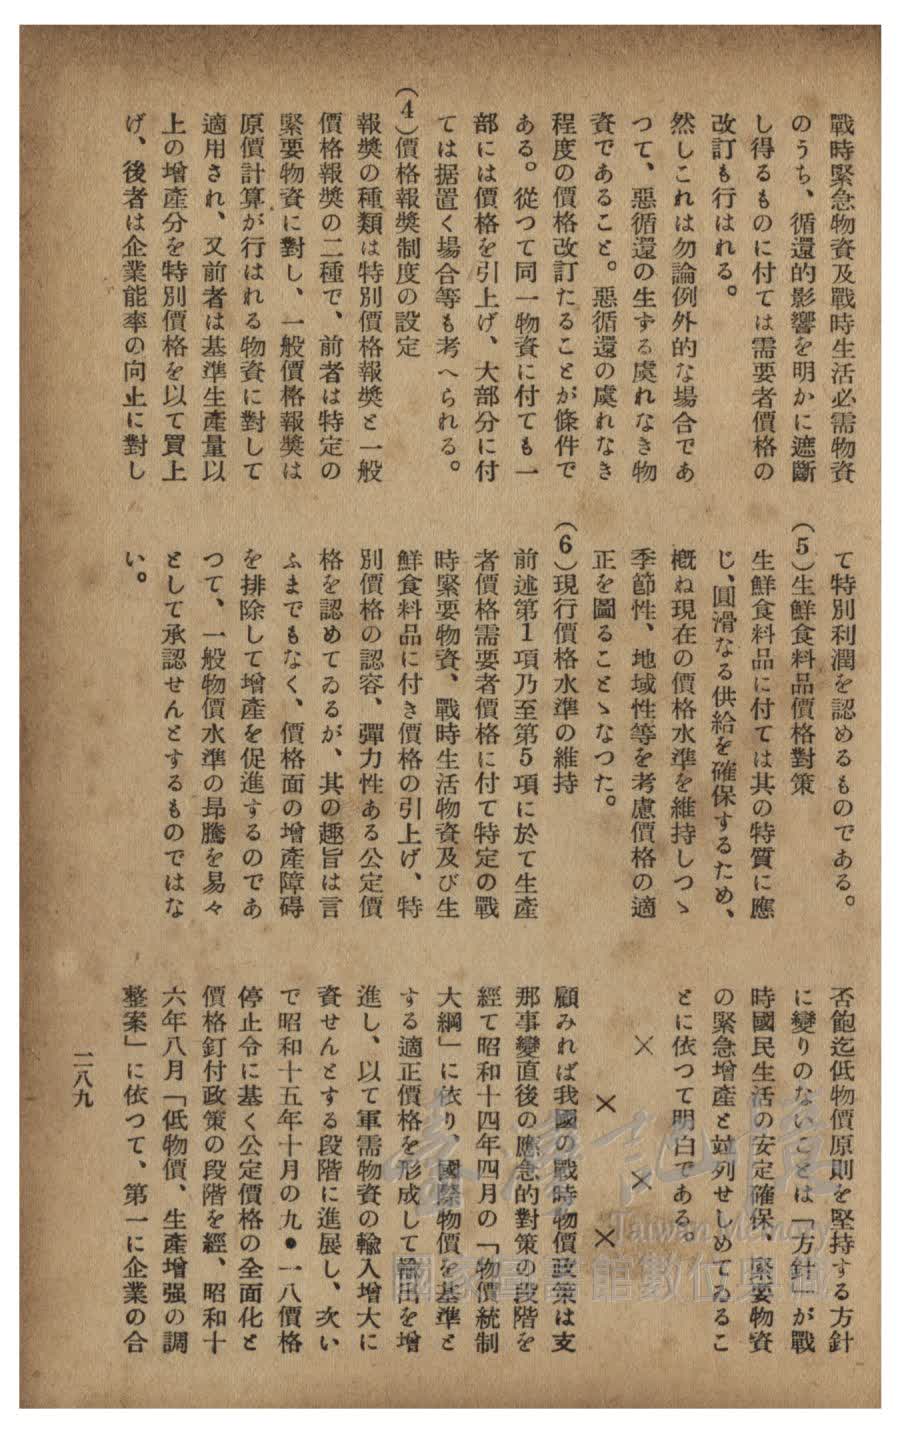 戰時緊急物資及戰時生活必需物資
のうち、循還的影響を明かに遮斷
し得るものに付ては需要者價格の
改訂も行はれる。
然しこれは勿論例外的な場合であ
つて、惡循還の生ずる虞れなき物
資であること。惡循還の虞れなき
程度の價格改訂たることが條件で
ある。從つて同一物資に付ても一
部には價格を引上げ、大部分に付
ては据置く場合等も考へられる。
(4)價格報奬制度の設定
報奬の種類は特別價格報奬と一般
價格報奬の二種で、前者は特定の
緊要物資に對し、一般價格報奬は
原價計算が行はれる物資に對して
適用され、又前者は基準生產量以
上の增產分を特別價格を以て買上
げ、後者は企業能率の向上に對し
て特別利潤を認めるものである。
(5)生鮮食料品價格對策
生鮮食料品に付ては其の特質に應
じ、圓滑なる供給を確保するため、
槪ね現在の價格水準を維持しつゝ
季節性、地域性等を考慮價格の適
正を圖ることゝなつた。
(6)現行價格水準の維持
前述第1項乃至第5項に於て生產
者價格需要者價格に付て特定の戰
時緊要物資、戰時生活物資及び生
鮮食料品に付き價格の引上げ、特
別價格の認容、彈力性ある公定價
格を認めてゐるが、其の趣旨は言
ふまでもなく、價格面の增產障碍
を排除して增產を促進するのであ
つて、一般物價水準の昻騰を易々
として承認せんとするものではな
い。
否飽迄低物價原則を堅持する方針
に變りのないことは「方針」が戰
時國民生活の安定確保、緊要物資
の緊急增產と竝列せしめてゐるこ
とに依つて明白である。
× × × ×
顧みれば我國の戰時物價政策は支
那事變直後の應急的對策の段階を
經て昭和十四年四月の「物價統制
大綱」に依り、國際物價を基準と
する適正價格を形成して輸出を增
進し、以て軍需物資の輸入增大に
資せんとする段階に進展し、次い
で昭和十五年十月の九・一八價格
停止令に基く公定價格の全面化と
價格釘付政策の段階を經、昭和十
六年八月「低物價、生產增强の調
整案」に依つて、第一に企業の合
二八九
臺灣記憶
Taiwan Memory
國家圖書館數位典藏